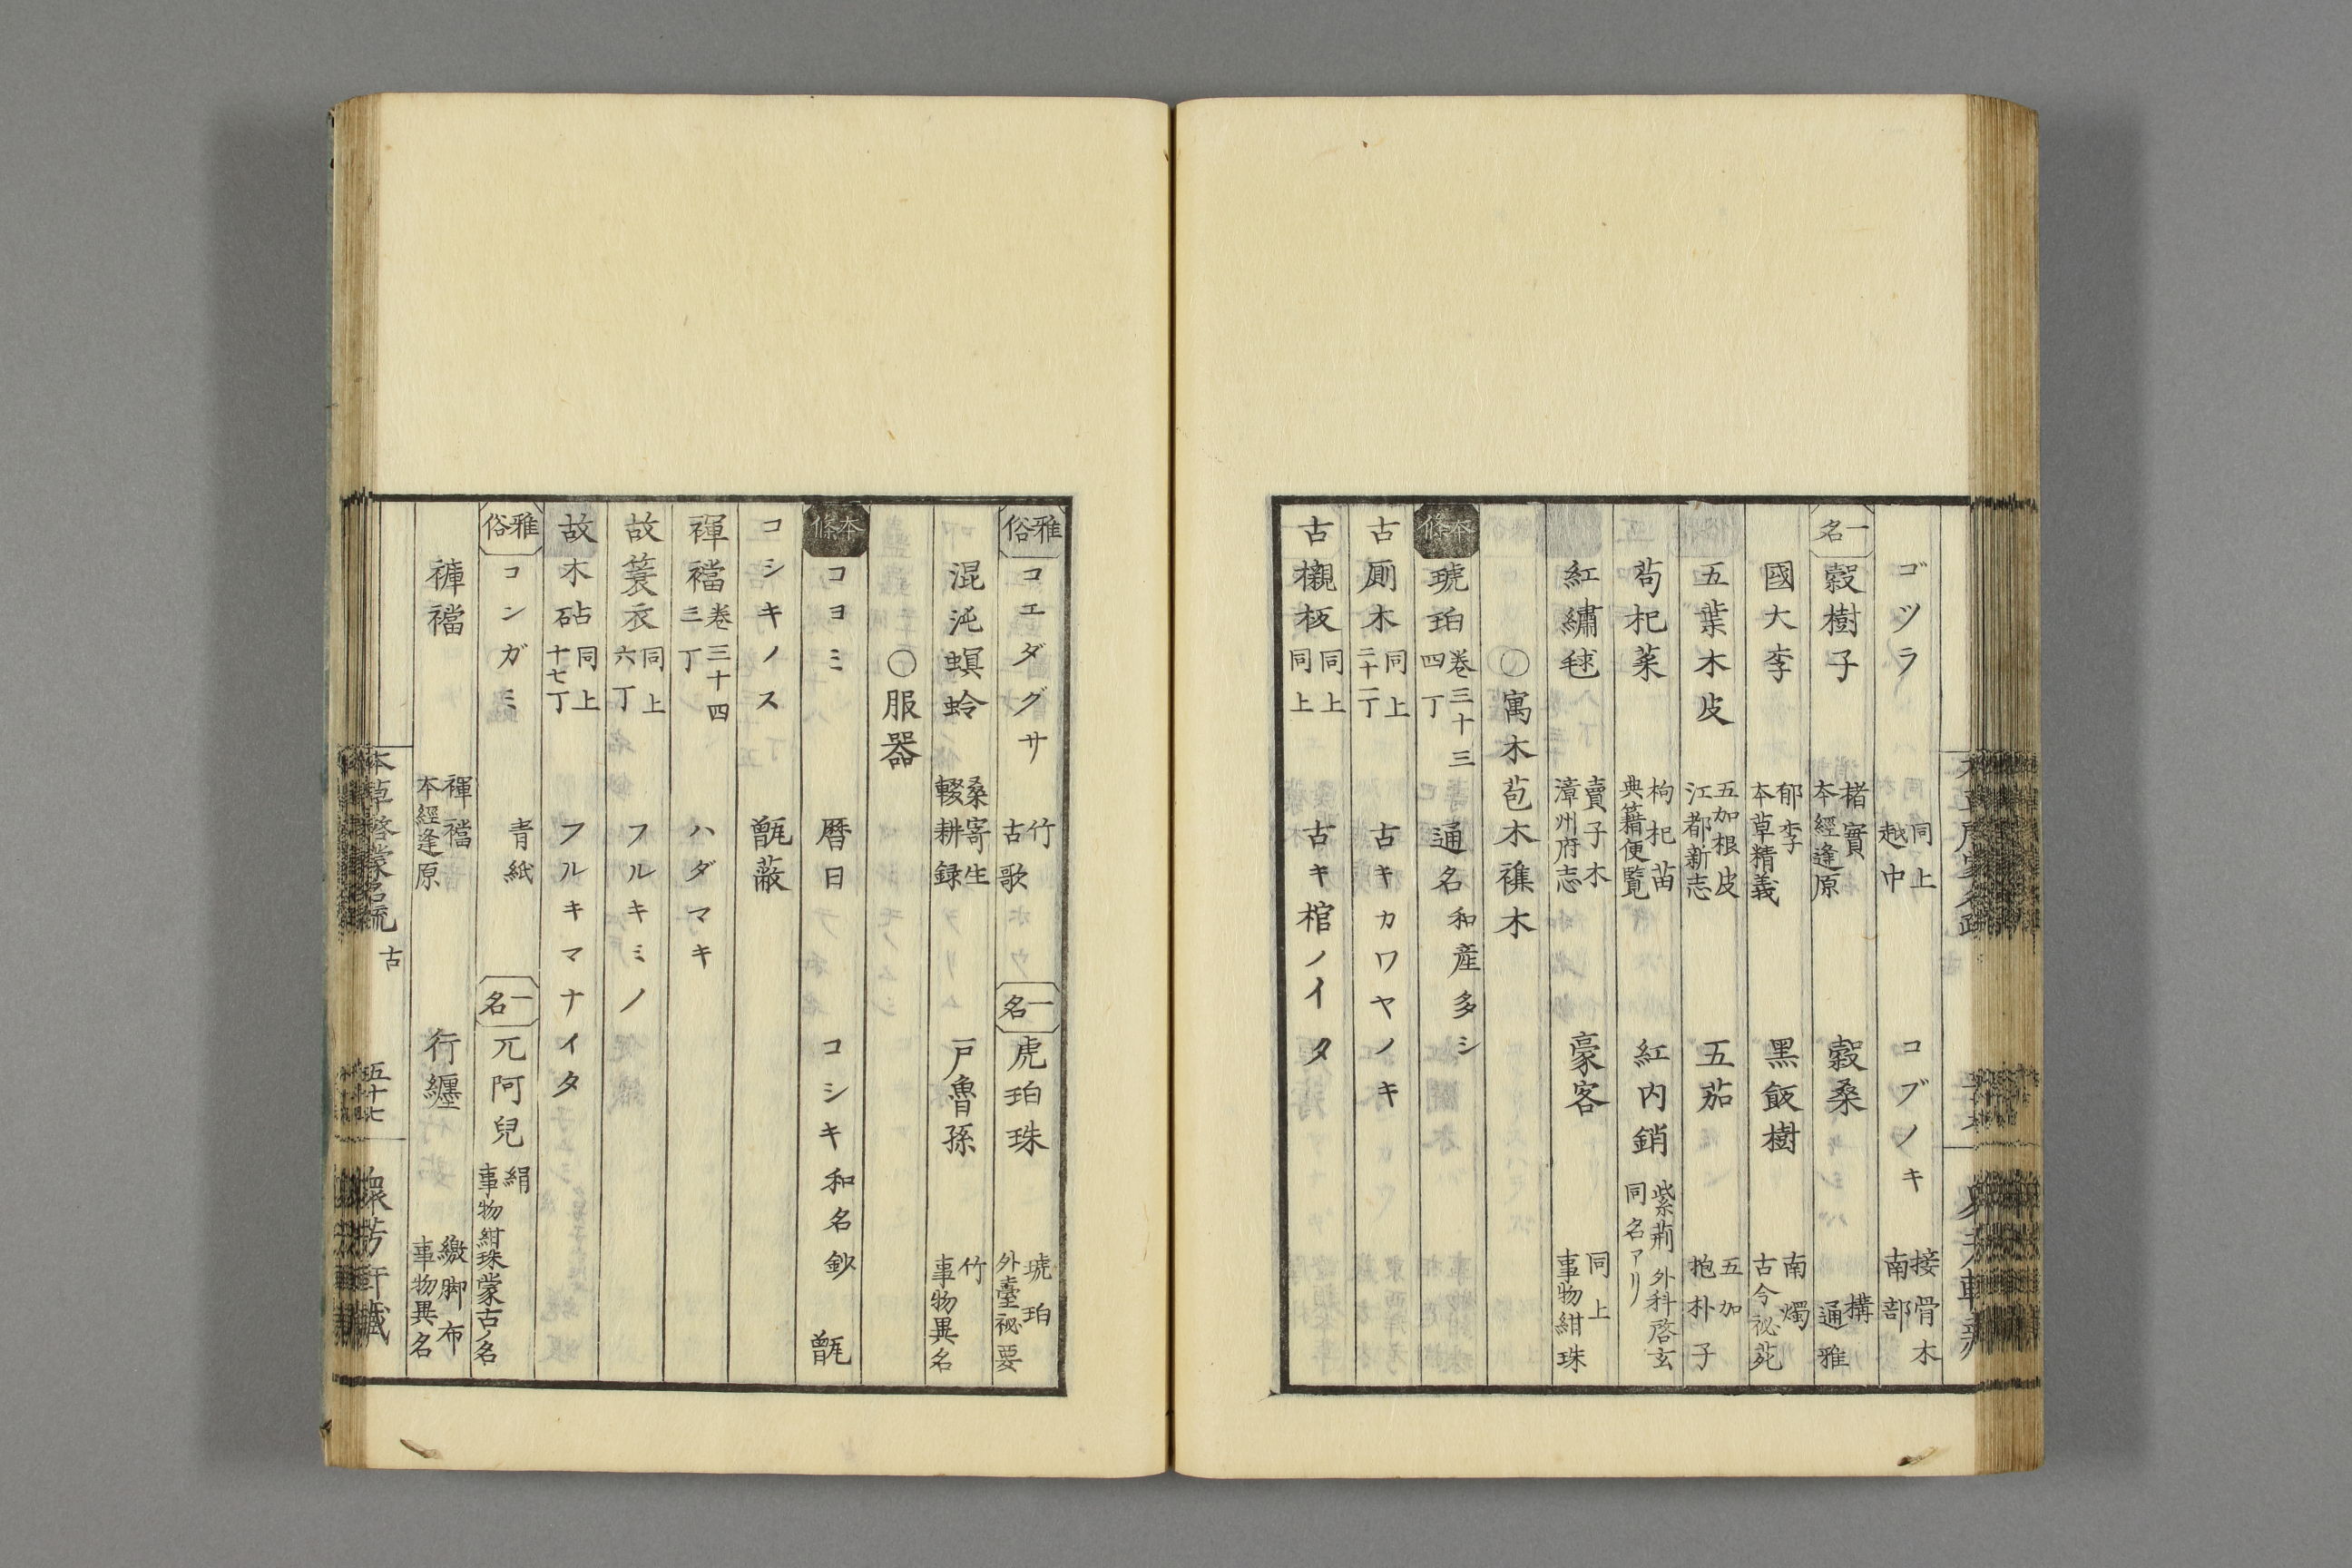 ゴツラ 同上 越中 コブノキ 接骨木 南部
一名 榖樹子 楮實 本經逢原 榖桑 構 通雅
國大李 郁李 本草精義 黒飯樹 南燭 古今祕苑
五葉木皮 五加根皮 江都新志 五茄 五加 抱朴子
茍杞菜 枸杞苗 典籍便覽 紅内銷 紫荊 外科啓玄 同名アリ
紅繡毬 賣子木 漳州府志 豪客 同上 事物紺珠
〇寓木苞木襍木
本條 琥珀 卷三十三 四丁 通名 和産多シ
古厠木 同上 二十二丁 古キカワヤノキ
古櫬板 同上 同上 古キ棺ノイタ
雅俗 コエダグサ 竹 古歌 一名 虎珀珠 琥珀 外臺祕要
混沌螟蛉 桑寄生 輟耕録 戸魯孫 竹 事物異名
〇服器
本條 コヨミ 暦日 コシキ和名鈔 甑
コシキノス 甑蔽
褌襠 卷三十四 三丁 ハダマキ
故簑衣 同上 六丁 フルキミノ
故木砧 同上 十七丁 フルキマナイタ
雅俗 コンガミ 青紙 一名 兀阿兒 絹 事物紺珠蒙古ノ名
褲襠 褌襠 本經逢原 行纏 繳脚布 事物異名
本草啓蒙名疏 古 五十七 懷芳軒藏